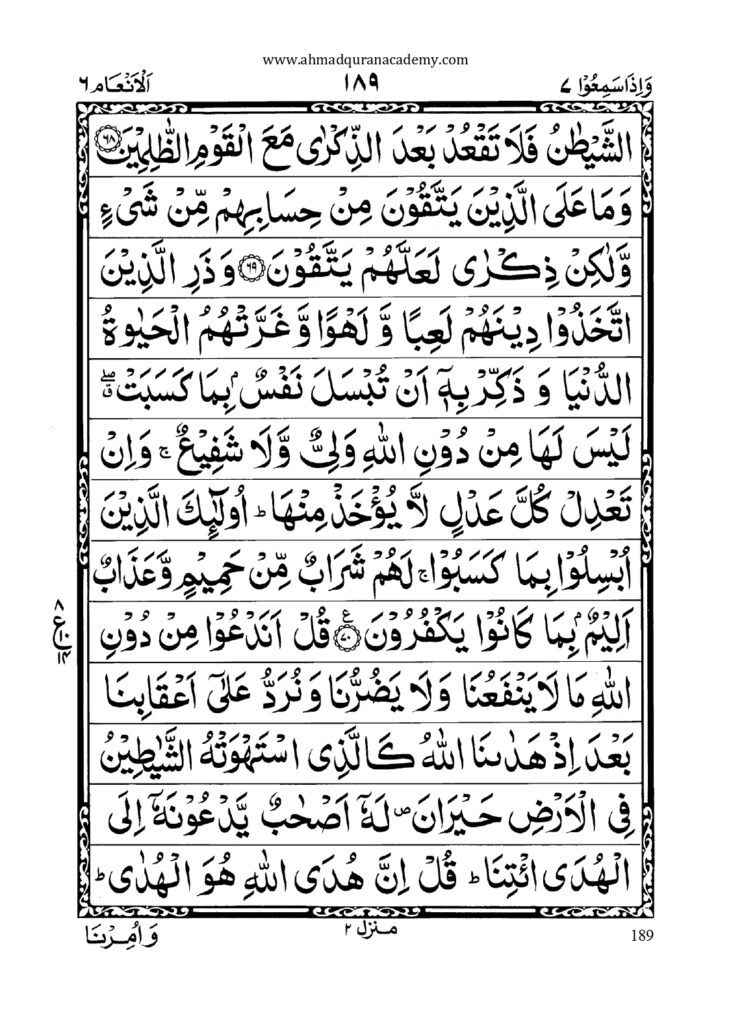 www.ahmadquranacademy.com
وَاِذَا سَمِعُوْا ٧
١٨٩
اَلْاَنْعَام ٦
الشَّيْطٰنُ فَلَا تَقْعُدْ بَعْدَ الذِّكْرٰى مَعَ الْقَوْمِ الظّٰلِمِيْنَ ﴿٦٨﴾
وَمَا عَلَى الَّذِيْنَ يَتَّقُوْنَ مِنْ حِسَابِهِمْ مِّنْ شَىْءٍ
وَّلٰكِنْ ذِكْرٰى لَعَلَّهُمْ يَتَّقُوْنَ ﴿٦٩﴾ وَذَرِ الَّذِيْنَ
اتَّخَذُوْا دِيْنَهُمْ لَعِبًا وَّ لَهْوًا وَّ غَرَّتْهُمُ الْحَيٰوةُ
الدُّنْيَا وَ ذَكِّرْ بِهٖٓ اَنْ تُبْسَلَ نَفْسٌۢ بِمَا كَسَبَتْ ۖۗ
لَيْسَ لَهَا مِنْ دُوْنِ اللّٰهِ وَلِىٌّ وَّلَا شَفِيْعٌ ۚ وَاِنْ
تَعْدِلْ كُلَّ عَدْلٍ لَّا يُؤْخَذْ مِنْهَا ؕ اُولٰٓئِكَ الَّذِيْنَ
اُبْسِلُوْا بِمَا كَسَبُوْا ۚ لَهُمْ شَرَابٌ مِّنْ حَمِيْمٍ وَّعَذَابٌ
اَلِيْمٌۢ بِمَا كَانُوْا يَكْفُرُوْنَ ﴿٧٠﴾ ع قُلْ اَنَدْعُوْا مِنْ دُوْنِ
٨
ع ١٠
١٤
اللّٰهِ مَا لَا يَنْفَعُنَا وَلَا يَضُرُّنَا وَنُرَدُّ عَلٰٓى اَعْقَابِنَا
بَعْدَ اِذْ هَدٰىنَا اللّٰهُ كَالَّذِى اسْتَهْوَتْهُ الشَّيٰطِيْنُ
فِى الْاَرْضِ حَيْرَانَ ۪ لَهٗٓ اَصْحٰبٌ يَّدْعُوْنَهٗٓ اِلَى
الْهُدَى ائْتِنَا ؕ قُلْ اِنَّ هُدَى اللّٰهِ هُوَ الْهُدٰى ؕ
منزل ٢
وَاُمِرْنَا
189